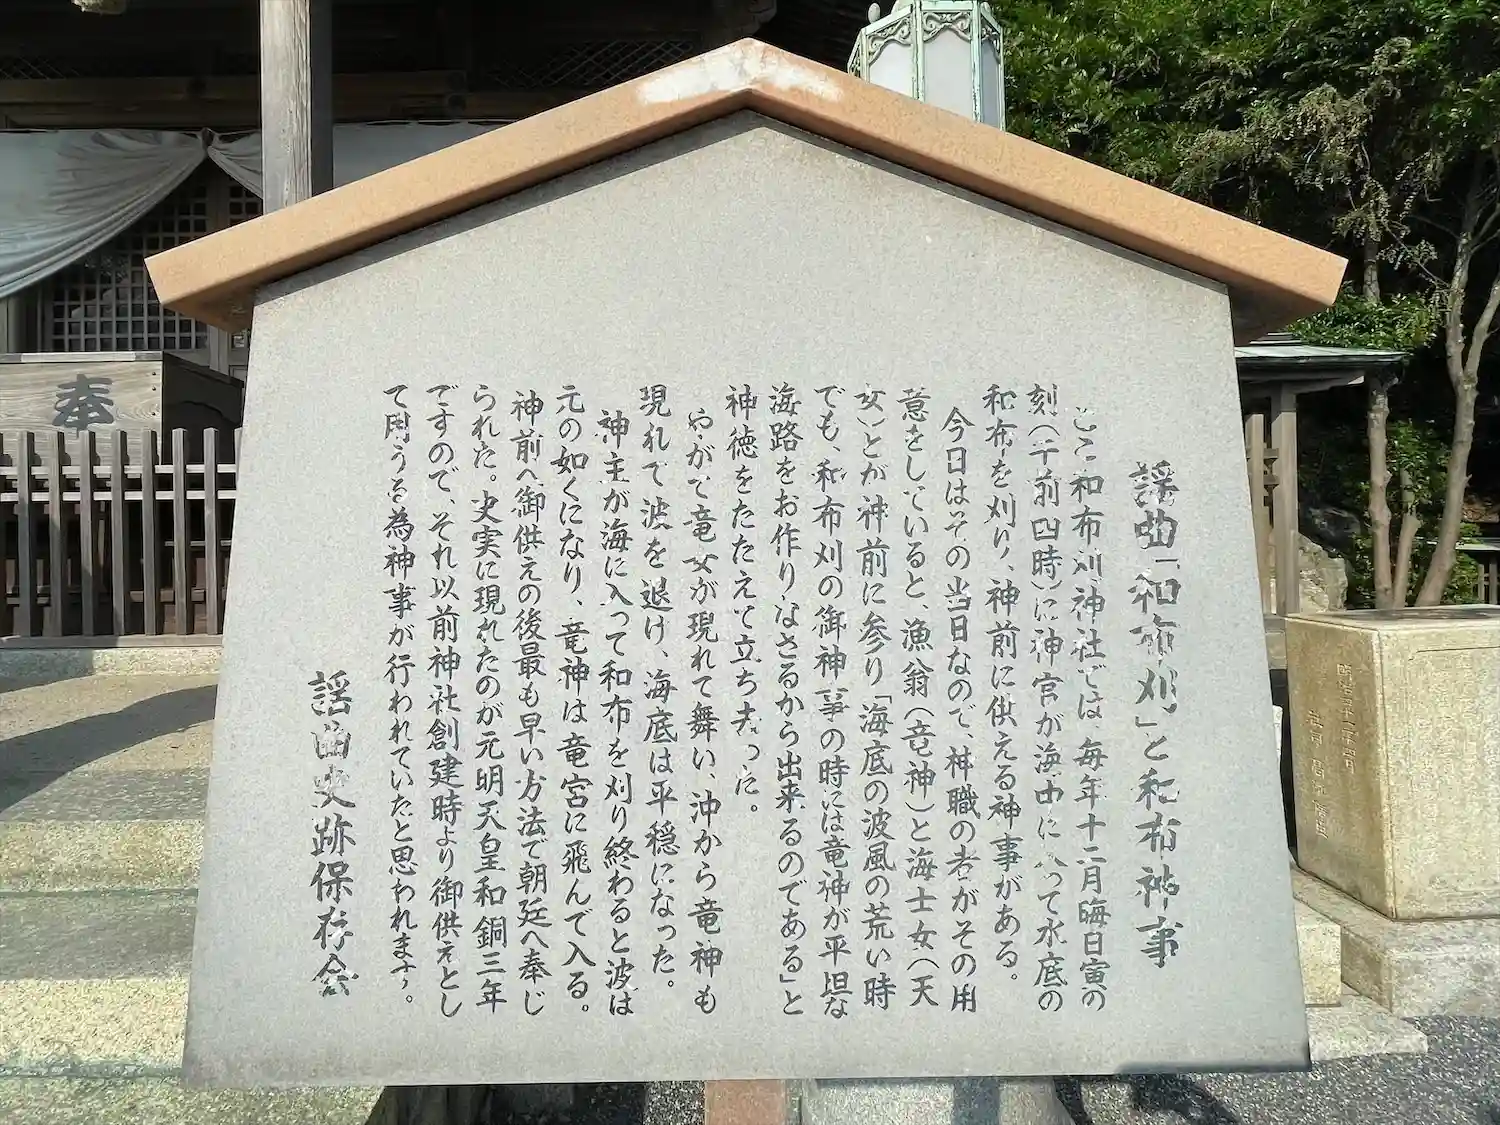 謡曲「和布刈」と和布神事
ここ和布刈神社では、毎年十二月晦日寅の
刻（午前四時）に神官が海中に入って水底の
和布を刈り、神前に供える神事がある。
今日はその当日なので、神職の者がその用
意をしていると、漁翁（竜神）と海士女（天
女）とが神前に参り「海底の波風の荒い時
でも、和布刈の御神事の時には竜神が平坦な
海路をお作りなさるから出来るのである」と
神徳をたたえて立ち去った。
やがて竜女が現れて舞い、沖から竜神も
現れて波を退け、海底は平穏になった。
神主が海に入って和布を刈り終わると波は
元の如くになり、竜神は竜宮に飛んで入る。
神前へ御供えの後最も早い方法で朝廷へ奉じ
られた。史実に現れたのが元明天皇和銅三年
ですので、それ以前神社創建時より御供えとし
て用うる為神事が行われていたと思われます。
謡曲史跡保存会
奉